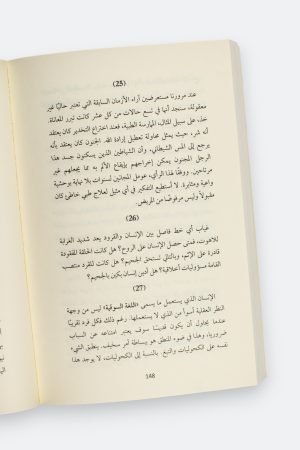 (25)
عند مرورنا مستعرضين آراء الأزمان السابقة التي تعتبر حاليًا غير
معقولة، سنجد أنها في تسع حالات من كل عشر كانت تبرر المعاناة.
خذ، على سبيل المثال، الممارسة الطبية، فعند اختراع التخدير كان يعتقد
أنه شر، حيث يمثل محاولة لتعطيل إرادة الله. الجنون كان يعتقد بأنه
يرجع إلى المس الشيطاني، وأن الشياطين الذين يسكنون جسد هذا
الرجل المجنون يمكن إخراجهم بإيقاع الألم به مما يجعلهم غير
مرتاحين. ووفقًا لهذا الرأي، عومل المجانين لسنوات بلا نهاية بوحشية
واعية ومثابرة. لا أستطيع التفكير في أي مثيل لعلاج طبي خاطئ كان
مقبولاً وليس مرفوضًا من المريض.
(26)
غياب أي خط فاصل بين الإنسان والقرود يعد شديد الغرابة
للاهوت. فمتى حصل الإنسان على الروح؟ هل كانت الحلقة المفقودة
قادرة على الإثم، وبالتالي تستحق الجحيم؟ هل كانت للقرد منتصب
القامة مسؤوليات أخلاقية؟ هل أدين إنسان بكين بالجحيم؟
(27)
الإنسان الذي يستعمل ما يسمى «اللغة السوقية» ليس من وجهة
النظر العقلية أسوأ من الذي لا يستعملها. رغم ذلك فكل فرد تقريبًا
عندما يحاول أن يكون قديسًا سوف يعتبر امتناعه عن السباب
ضروريا، وهذا في ضوء المنطق هو ببساطة أمر سخيف. ينطبق الشيء
نفسه على الكحوليات والتبغ. بالنسبة إلى الكحوليات، لا يوجد هذا
148